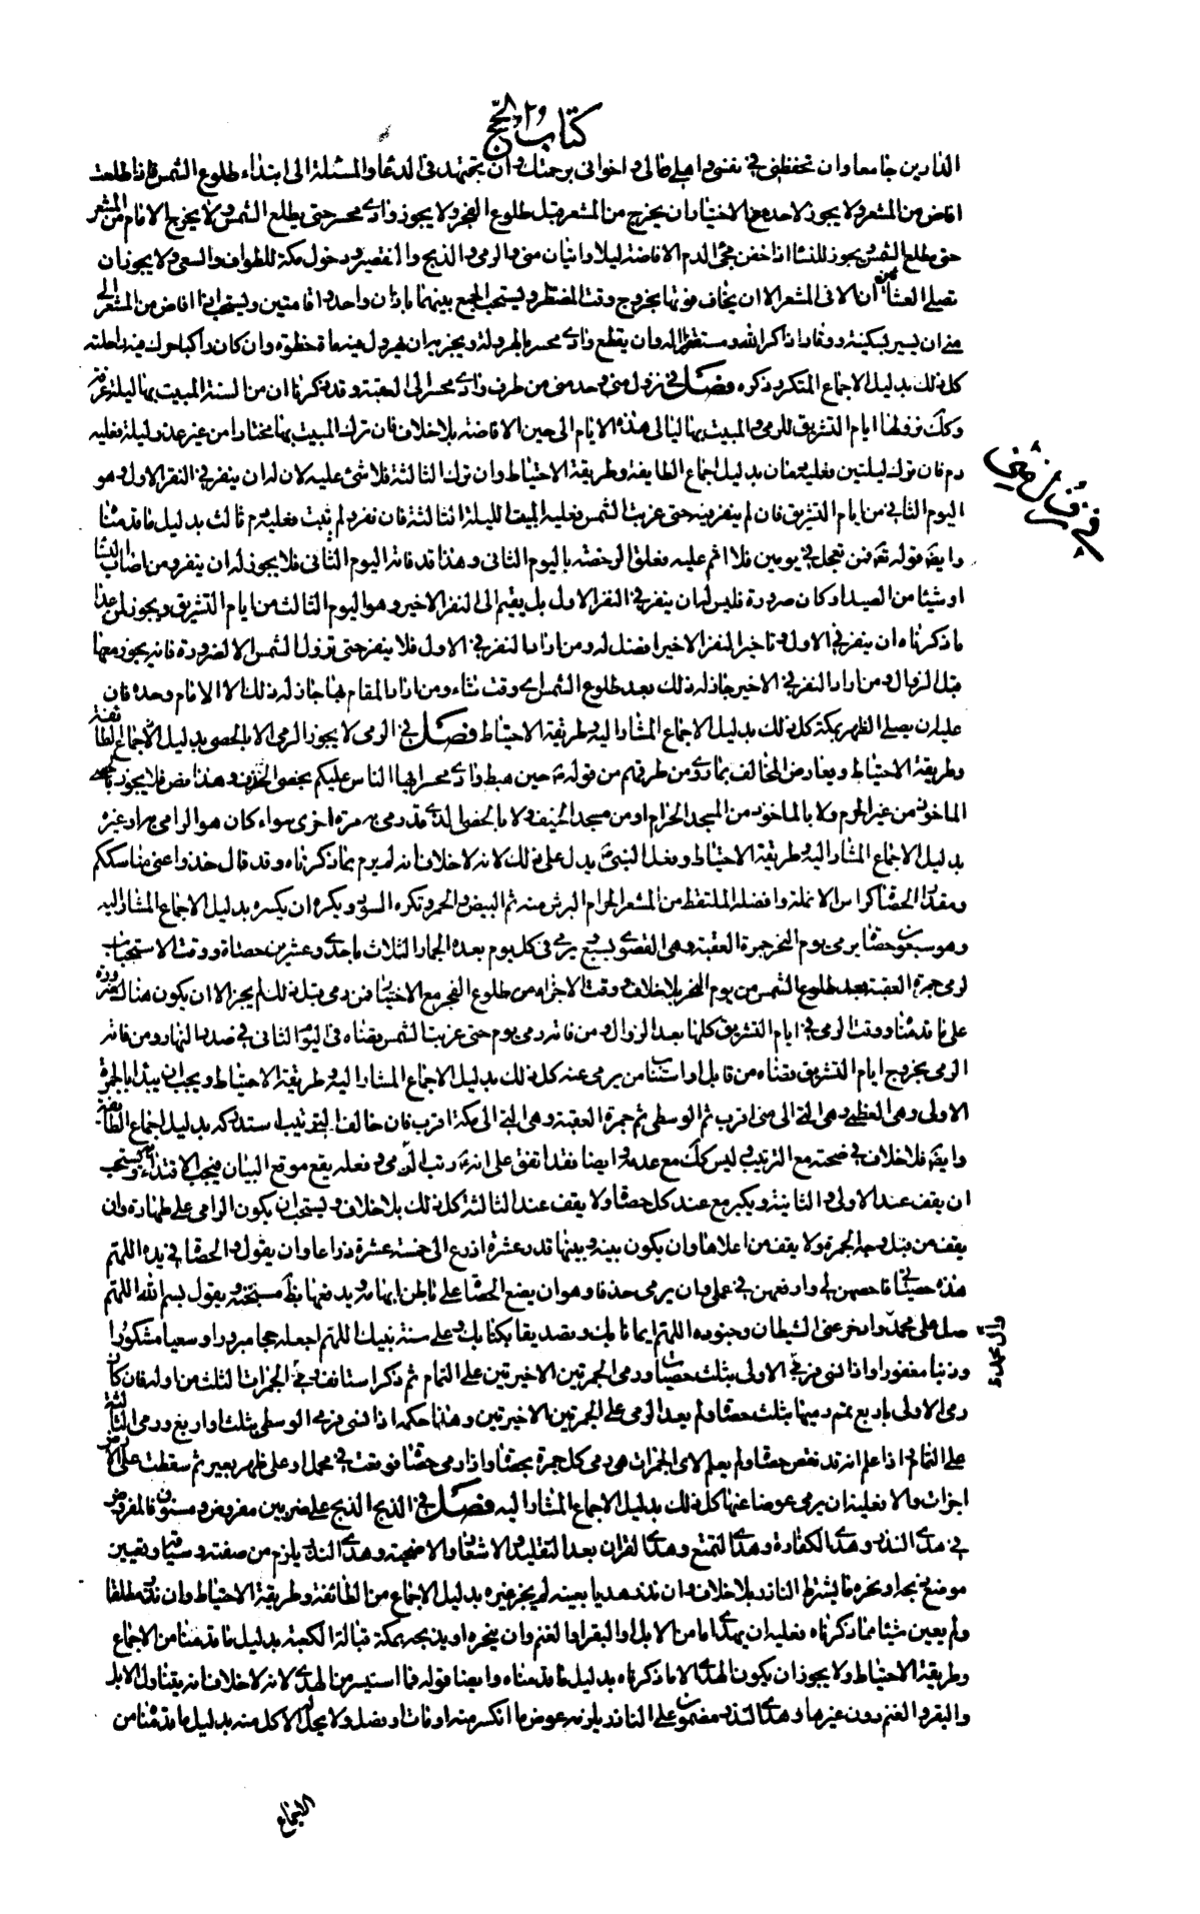 كتاب الحج
الدارين جامعا وان تحفظني في نفسي واهلي ومالي واخواني برحمتك وان يجتهد في الدعاء والمسئلة الى ابتداء طلوع الشمس فاذا طلعت
افاض من المشعر ولا يجوز لاحد مع الاختيار ان يخرج من المشعر قبل طلوع الفجر ولا يجوز وادي محسر حتى يطلع الشمس ولا يخرج الامام من المشعر
حتى يطلع الشمس ويجوز للنساء اذا خفن مجئ الدم الافاضة ليلا واتيان منى والرمى والذبح والتقصير ودخول مكة للطواف والسعى ولا يجوز ان
تصلى العشاآن الا في المشعر الا ان يخاف فوتها بخروج وقت المضطر ويستحب الجمع بينهما باذان واحد واقامتين ويستحب لمن افاض من المشعر الى
منى ان يسير بسكينة ووقار ذاكرا لله ومستغفرا له وان يقطع وادي محسر بالهرولة ويجزيه ان يهرول فيه مائة خطوة وان كان راكبا حرك فيه راحلته
كل ذلك بدليل الاجماع المتكرر ذكره فصل في نزول منى وحد منى من طرف وادي محسر الى العقبة وقد ذكرنا ان من السنة المبيت بها ليلة عرفة
وكذلك نزولها ايام التشريق للرمى والمبيت بها ليالى هذه الايام الى حين الافاضة بلا خلاف فان ترك المبيت بها مختارا من غير عذر ليلة فعليه
دم فان ترك ليلتين فعليه دمان بدليل اجماع الطايفة وطريقة الاحتياط وان ترك الثالثة فلا شئ عليه لان له ان ينفر في النفر الاول وهو
اليوم الثانى من ايام التشريق فان لم ينفر فيه حتى غربت الشمس فعليه المبيت الليلة الثالثة فان نفر ولم يبت فعليه دم ثالث بدليل ما قدمناه
وايضا قوله تعالى فمن تعجل في يومين فلا اثم عليه فعلق الرخصة باليوم الثانى وهذا قد فاته اليوم الثانى فلا يجوز له ان ينفر ومن اصاب النساء
او شيئا من الصيد او كان صرورة فليس له ان ينفر في النفر الاول بل يقيم الى النفر الاخير وهو اليوم الثالث من ايام التشريق ويجوز لمن عدا
ما ذكرناه ان ينفر في الاول وتاخير النفر الاخير افضل له ومن اراد النفر في الاول فلا ينفر حتى تزول الشمس الا لضرورة فانه يجوز معها
قبل الزوال ومن اراد النفر في الاخير جاز له ذلك بعد طلوع الشمس اي وقت شاء ومن اراد المقام بها جاز له ذلك الا الامام وحده فان
عليه ان يصلى الظهر بمكة كل ذلك بدليل الاجماع المشار اليه وطريقة الاحتياط فصل في الرمى لا يجوز الرمى الا بالحصى بدليل الاجماع الطائفة
وطريقة الاحتياط ويعارض المخالف بما روى من طرقهم من قوله حين هبط وادي محسر ايها الناس عليكم بحصى الخذف وهذا نص فلا يجوز بالحصى
الماخوذ من غير الحرم ولا بالماخوذ من المسجد الحرام او من مسجد الخيف ولا بالحصى الذي قد رمى به مرة اخرى سواء كان هو الرامى به او غيره
بدليل الاجماع المشار اليه وطريقة الاحتياط وفعل النبى يدل على ذلك لانه لا خلاف انه لم يرم بما ذكرناه وقد قال خذوا عنى مناسككم
ومقدار الحصاة كراس الانملة وافضله الملتقط من المشعر الحرام البرش منه ثم البيض والحمر وتكره السود ويكره ان يكسره بدليل الاجماع المشار اليه
وهو سبعون حصاة يرمى يوم النحر جمرة العقبة وهى القصوى بسبع ويرمى في كل يوم بعده الجمار الثلاث باحدى وعشرين حصاة ووقت الاستحباب
لرمى جمرة العقبة بعد طلوع الشمس من يوم النحر بلا خلاف ووقت الاجزاء من طلوع الفجر مع الاختيار فمن رمى قبل ذلك لم يجز الا ان يكون هناك ضرورة
على ما قدمناه ووقت الرمى في ايام التشريق كلها بعد الزوال ومن فاته رمى يوم حتى غربت الشمس قضاه في اليوم الثانى في صدر النهار ومن فاته
الرمى بخروج ايام التشريق قضاه من قابل او استناب من يرمى عنه كل ذلك بدليل الاجماع المشار اليه وطريقة الاحتياط ويجب ان يبتدا بالجمرة
الاولى وهى العظمى وهى التى الى منى اقرب ثم الوسطى ثم جمرة العقبة وهى التى الى مكة اقرب فان خالف الترتيب استدركه بدليل اجماع الطائفة
وايضا فلا خلاف في صحته مع الترتيب وليس كذلك مع عدمه وايضا فقد اتفق على انه رتب الرمى وفعله يقع موقع البيان فيجب الاقتداء به ويستحب
ان يقف عند الاولى والثانية ويكبر مع عند كل حصاة ولا يقف عند الثالثة كل ذلك بلا خلاف ويستحب ان يكون الرامى على طهارة وان
يقف من قبل وجه الجمرة ولا يقف من اعلاها وان يكون بينه وبينها قدر عشرة اذرع الى خمسة عشرة ذراعا وان يقول والحصا في يده اللهم
هذه حصياتى فاحصهن لى وارفعهن في عملى وان يرمى حذفا وهو ان يضع الحصاة على باطن ابهامه ويدفعها بظاهر مسبحته ويقول بسم الله اللهم
صل على محمد وادحر عنى الشيطان وجنوده اللهم ايمانا بك وتصديقا بكتابك وعلى سنة نبيك اللهم اجعله حجا مبرورا وسعيا مشكورا
وذنبا مغفورا واذا نسى فرمى الاولى بثلث حصيات ورمى الجمرتين الاخيرتين على التمام ثم ذكر استانف رمى الجمرات الثلث من اوله فان كان
رمى الاولى باربع تمم رميها بثلث حصيات ولم يعد الرمى على الجمرتين الاخيرتين وهذا حكمه اذا نسى فرمى الوسطى بثلث او اربع ورمى الثالثة
على التمام واذا علم انه قد نقص حصاة ولم يعلم لاى الجمرات هى رمى كل جمرة بحصاة واذا رمى حصاة فوقعت في محمل او على ظهر بعير ثم سقطت على الارض
اجزات والا فعليه ان يرمى عوضا عنها كل ذلك بدليل الاجماع المشار اليه فصل في الذبح الذبح على ضربين مفروض ومسنون فالمفروض
في هدى النذر وهدى الكفارة وهدى التمتع وهدى القران بعد التقليد او الاشعار والاضحية وهدى النذر يلزم من صفته وسياقه وتعيين
موضع ذبحه او نحره ما يشترط الناذر بلا خلاف وان نذر هديا بعينه لم يجز غيره بدليل الاجماع من الطائفة وطريقة الاحتياط وان نذر مطلقا
ولم يعين شيئا مما ذكرناه فعليه ان يهدى اما من الابل او البقر او الغنم وان ينحره او يذبحه بمكة قبالة الكعبة بدليل ما قدمناه من الاجماع
وطريقة الاحتياط ولا يجوز ان يكون الهدى الا ما ذكرناه بدليل ما قدمناه وايضا قوله فما استيسر من الهدى لانه لا خلاف انه يتناول الابل
والبقر والغنم دون غيرها وهدى النذر مضمون على الناذر يلزمه عوض ما انكسر منه او مات او ضل ولا يحل له الاكل منه بدليل ما قدمناه من
في نزول منى
وآل محمد
الاجماع